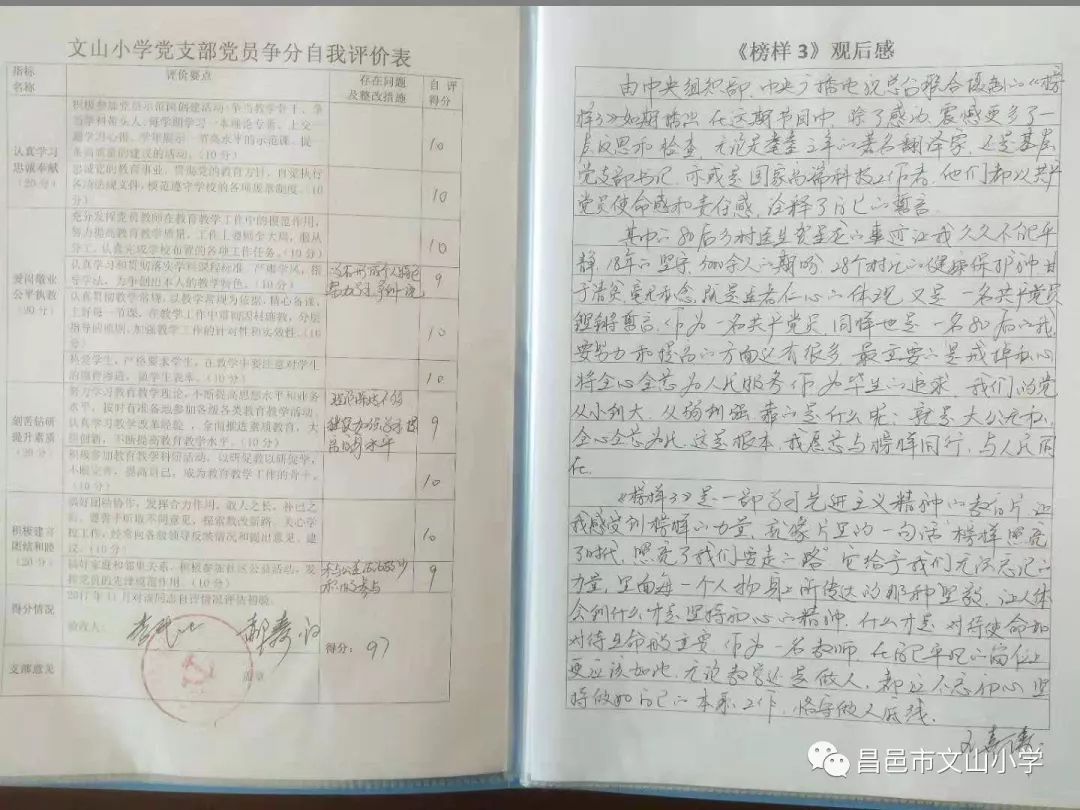 文山小学党支部党员争分自我评价表
指标
名称
评价要点
存在问题
及整改措施
自 评
得分
认真学习
忠诚奉献
(20分)
积极参加党员示范岗创建活动,争当教学骨干、争
当学科带头人;每学期学习一本理论专著、上交一
篇学习心得、学年展示一节高水平的示范课、提一
条高质量的建议的活动。(10分)
10
忠诚党的教育事业,贯彻党的教育方针,自觉执行
各项法规文件,模范遵守学校的各项规章制度。(10
分)
10
爱岗敬业
公平执教
充分发挥党员教师在教育教学工作中的模范作用,
努力提高教育教学质量,工作上要顾全大局,服从
分工,认真完成学校布置的各项工作任务。(10分)
10
认真学习和贯彻落实学科课程标准,严谨学风,指
导学法,力争创出本人的教学特色。(10分)
9
认真贯彻教学常规,以教学常规为依据,精心备课,
上好每一节课,在教学工作中贯彻因材施教,分层
指导的原则,加强教学工作的针对性和实效性。(10
分)
10
热爱学生,严格要求学生,在教学中要注意对学生
的德育渗透,做学生表率。(10分)
10
刻苦钻研
提升素质
(20分)
努力学习教育教学理论,不断提高思想水平和业务
水平,按时有准备地参加各级各类教育教学活动。
认真学习教学改革经验,全面推进素质教育,大
胆创新,不断提高教育教学水平。(10分)
9
积极参加教育教学科研活动,以研促教以研促学,
不断完善,提高自己,成为教育教学工作的骨干。
(10分)
10
积极建言
团结和睦
(20分)
搞好团结协作,发挥合力作用。取人之长,补己之
短,要善于听取不同意见,探索教改新路。关心学
校工作,经常向各级领导反映情况和提出意见、建
议。(10分)
10
搞好家庭和邻里关系,积极参加社区公益活动,发
挥党员的先锋模范作用。(10分)
9
得分情况
2017年11月对该同志自评情况评估初验。
验收人:
得分: 97
支部意见
盖章
《榜样 3》观后感
由中央组织部、中央广播电视总台联合摄制的《榜
样3》如期播出,在这期节目中,除了感动、震感更多了一
层反思和检查,无论是耄耋之年的著名翻译家,还是基层
党支部书记,亦或是国家高端科技工作者,他们都以共产
党员使命感和责任感,诠释了自己的誓言。
其中的80后乡村医生贺星龙的事迹让我久久不能平
静,18年的坚守,
又是一名共产党员
铿锵誓言。作为一名共产党员,同样也是一名80后的我
要努力和提高的方面还有很多,最主要的是戒掉私心
将全心全意为人民服务作为毕生的追求。我们的党
从小到大、从弱到强,靠的是什么呢:就是大公无私,
全心全意为民,这是根本。我愿意与榜样同行,与人民同
在。
《榜样3》是一部
我感受到榜样的力量,就像片里的一句话“榜样照亮
了时代,照亮了我们要走的路”它给予我们无法忘记的
力量,里面每一个人物身上所传达的那种坚毅,让人体
会到什么才是坚持初心的精神,什么才是对待使命如
对待生命般重要。作为一名教师,在自己平凡的岗位上
更应该如此,无论教学还是做人,都应不忘初心,坚
持做好自己的本职工作,恪守做人底线。
昌邑市文山小学